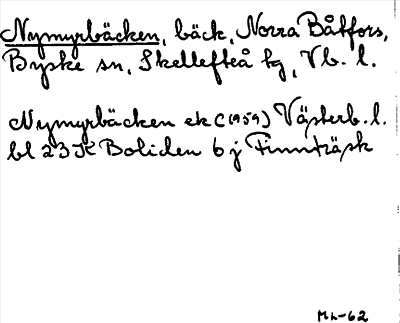 Nymyrbäcken, bäck, Norra Båtfors,
Byske sn, Skellefteå kg, Vb. l.
Nymyrbäcken ek (1959) Västerb. l.
bl 23 K Boliden 6 j Finnträsk